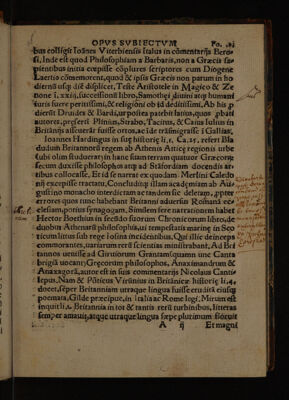 OPVS SVBIECTVM Fo.
bus colligit Ioānes Viterbiensis Italus in cōmentarijs Bero⸗
si, Inde est quod Philosophiam a Barbaris, non a Græcis sa⸗
pientibus initia cœpisse cōplures scriptores cum Diogene
Laertio cōmemorent, quod & ipsis Græcis non parum in ho
diernū usq; diē displicet, Teste Aristotele in Magico & Ze
none i. xxiij. successionū libro, Samothei diuini atq; humani
iuris fuere peritissimi, & religioni ob id deditissimi, Ab his
dicerēt Druides & Bardi, ut postea patebit latius, quos
autores, præsertī Pliniū, Strabo, Tacitus, & Caius Iulius in
Britānijs asseuerāt fuisse ortos, ac ide trāsmigrasse ī Gallias,
Ioannes Hardingus in suę historię li. 1. Ca. 25. refert Bla
dudum Britannorū regem ab Athenis Atticę regionis urbe
subi olim studuerat in hanc suam terram quatuor Græcorū
secum duxisse philosophos atq; ad Stāfordiam docendis ar⸗
tibus collocasse, Et id se narrat ex quodam Merlini Caledo
nij excerpsisse tractatu, Concludūtq; illam acadęmiam ab Au
gustino monacho interdictam ac tandem sic deletam, ppter
errores quos tunc habebant Britanni aduersus Romanā ec⸗
clesiam, potius synagogam, Similem fere narrationem habet
Hector Boethius in secūdo suorum Chronicorum libro, de
duobus Atheniēsis philosophis, ui tempestatis marinę in Sco
ticum littus sub rege Iosina incidentibus, Qui illic deinceps
commorantes, uariarum rerū scientias ministrabant, Ad Bri
tannos uenisse ad Giruiorum Grantam (quam nunc Canta
brigiā uocant) Gręcorum philosophos, Anaximandrum &
Anaxagorā, autor est in suis commentarijs Nicolaus Canti⸗
lepus, Nam & Pōticus Virūnius in Britānicæ historię li. 4.
docet, sęper Britanniam utraque lingua fuisse eruditā eiusq;
poemata, Gildæ præcipue, in Italia ac Rome legi, Mirum est
inquit li. 1. Britannia in tot & tantis rerū turbinibus, literas
semper amauit, atque utraque lingua sæpe plurimum floruit
A ij Et magni